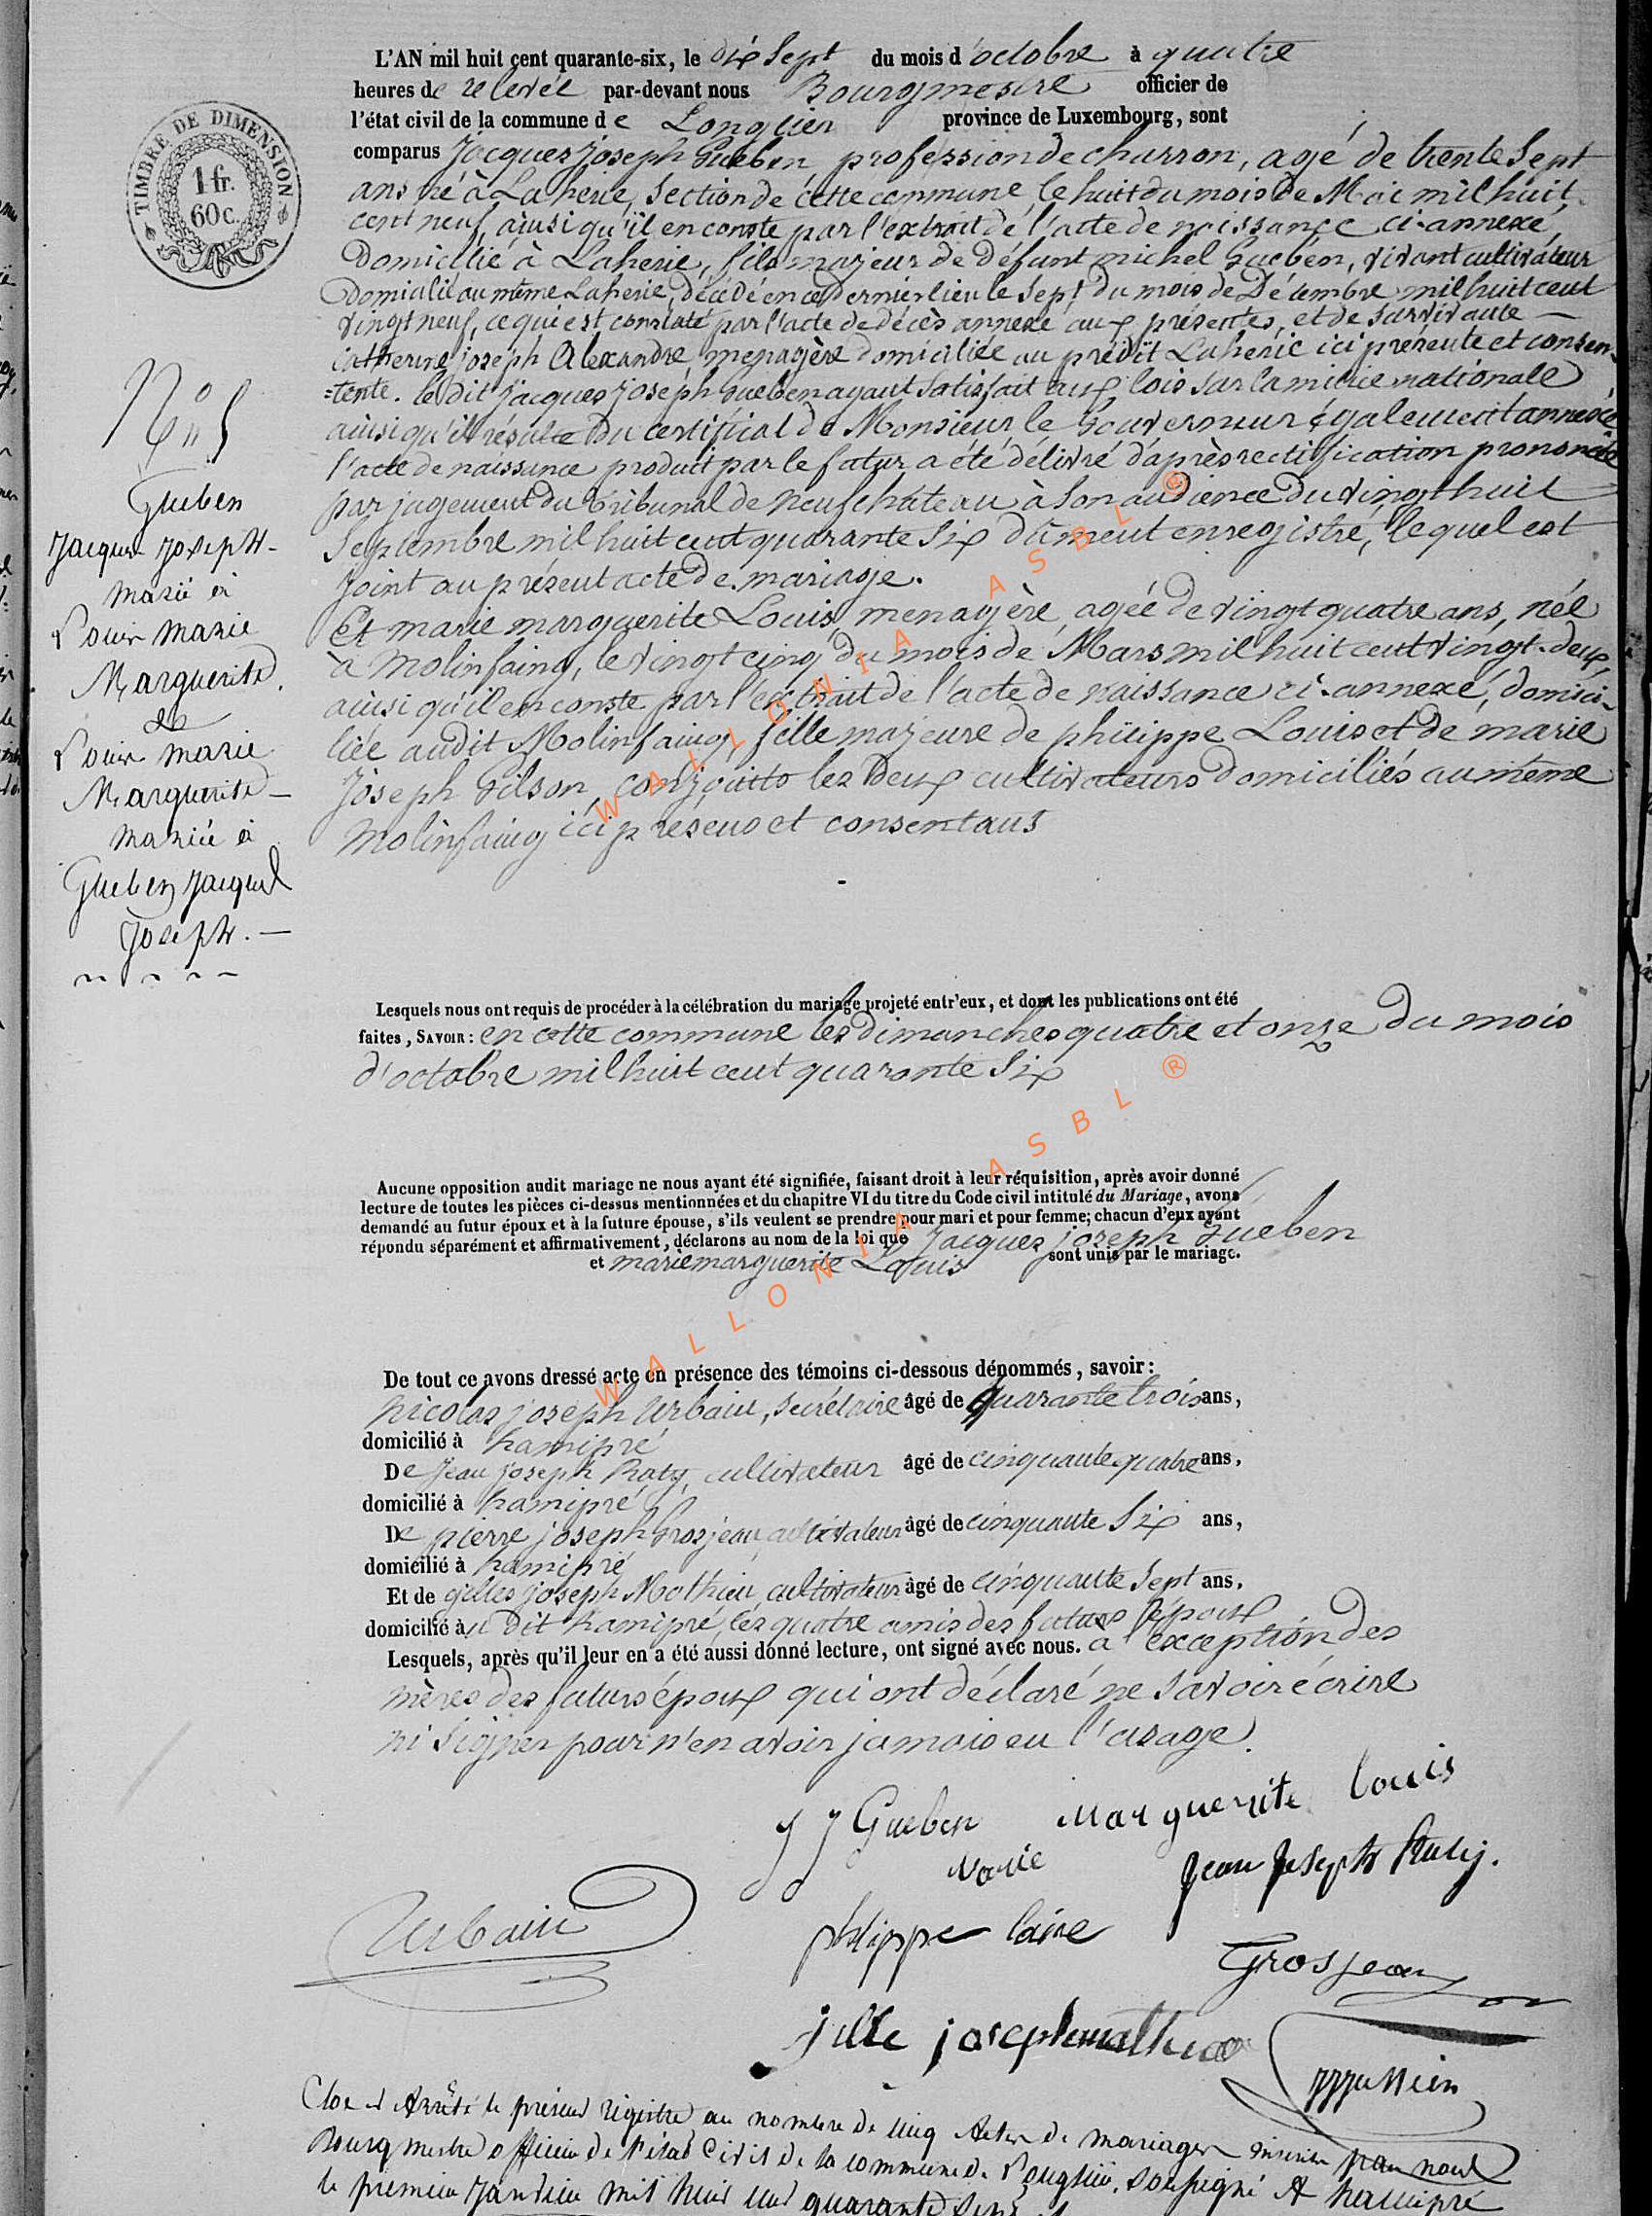 L'AN mil huit cent quarante-six, le dix sept du mois d'octobre à quatre
heures de relevée par-devant nous Bourgmestre officier de
l'état civil de la commune de Longlier province de Luxembourg, sont
comparus Jacques Joseph Gueben, profession de charron, agé de trente sept
ans né à Laherie, section de cette commune, le huit du mois de Mai mil huit
cent neuf, ainsi qu'il en conste par l'extrait de l'acte de naissance ci-annexé,
Domicilié à Laherie, fils majeur de défunt michel Gueben, vivant cultivateur
Domicilié au même Laherie, décédé en ce dernier lieu le sept du mois de Décembre mil huit cent
vingt neuf, ce qui est constaté par l'acte de décès annexé aux présentes, et de survivante
Catherine joseph Alexandre menagère domiciliée au prédit Laherie ici présente et consen-
=tente. le dit jacques joseph Gueben ayant satisfait aux lois sur la milice nationale
ainsi qu'il résulte du certificat de Monsieur le Gouverneur également annexé
l'acte de naissance produit par le futur a été délivré d'après rectification prononcée
par jugement du tribunal de neufchateau à son audience du vingt huit
Septembre mil huit cent quarante six dûment enregistré, lequel est
joint au présent acte de mariage.
Et marie marguerite Louis, menagère, agée de vingt quatre ans, née
à Molinfaing, le vingt cinq du mois de Mars mil huit cent vingt-deux,
ainsi qu'il en conste par l'extrait de l'acte de naissance ci-annexé, domici-
liée audit Molinfaing, fille majeure de philippe Louis et de marie
Joseph Gilson, conjoints les deux cultivateurs domiciliés au même
Molinfaing ici présens et consentans
TIMBRE DE DIMENSION
1 fr.
60 c.
N° 5
Gueben
Jacques Joseph-
marié à
Louis Marie
Marguerite.
et
Louis Marie
Marguerite-
mariée à
Gueben Jacques
Joseph.-
Lesquels nous ont requis de procéder à la célébration du mariage projeté entr'eux, et dont les publications ont été
faites, SAVOIR: en cette commune les dimanches quatre et onze du mois
d'octobre mil huit cent quarante six
Aucune opposition audit mariage ne nous ayant été signifiée, faisant droit à leur réquisition, après avoir donné
lecture de toutes les pièces ci-dessus mentionnées et du chapitre VI du titre du Code civil intitulé du Mariage, avons
demandé au futur époux et à la future épouse, s'ils veulent se prendre pour mari et pour femme; chacun d'eux ayant
répondu séparément et affirmativement, déclarons au nom de la loi que Jacques joseph Gueben
et marie marguerite Louis sont unis par le mariage.
De tout ce avons dressé acte en présence des témoins ci-dessous dénommés, savoir:
Nicolas joseph Urbain, secrétaire âgé de quarante trois ans,
domicilié à hamipré
De Jean joseph Raty, cultivateur âgé de cinquante quatre ans,
domicilié à hamipré
De pierre joseph Grosjean, cultivateur âgé de cinquante six ans,
domicilié à hamipré
Et de gilles joseph Mathieu, cultivateur âgé de cinquante sept ans,
domicilié à u dit hamipré, les quatre amis des futurs époux
Lesquels, après qu'il leur en a été aussi donné lecture, ont signé avec nous. à l'exception des
mères des futurs époux qui ont déclaré ne savoir écrire
ni signer pour n'en avoir jamais eu l'usage.
J J Gueben Marguerite Louis
Marie Jean Joseph Raty.
Urbain philippe Grosjean
jille joseph mathieu
Clos et Arrêté le présent registre au nombre de cinq Actes de mariages inscrits par nous
Bourgmestre officier de l'état Civil de la commune de Longlier, soussigné A hamipré
le premier Janvier mil huit cent quarante sept
WALLONIA ASBL ®
WALLONIA ASBL ®